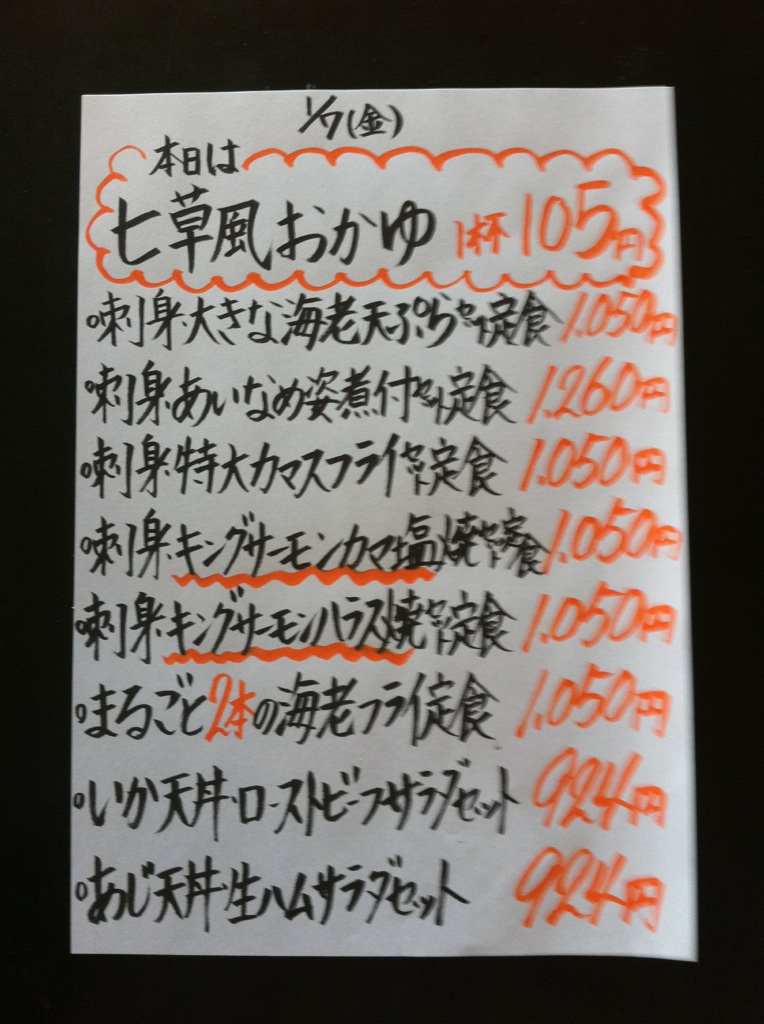 1/7(金)
本日は
七草風おかゆ 1杯105円
○刺身・大きな海老天ぷらセット定食 1.050円
○刺身・あいなめ姿煮付セット定食 1.260円
○刺身・特大カマスフライセット定食 1.050円
○刺身・キングサーモンカマ塩焼セット定食 1.050円
○刺身・キングサーモンハラス焼セット定食 1.050円
○まるごと2本の海老フライ定食 1.050円
○いか天丼・ローストビーフサラダセット 924円
○あじ天丼・生ハムサラダセット 924円